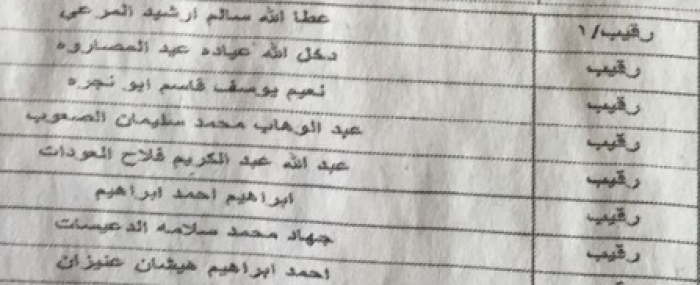 رقيب/١ عطا الله سالم ارشيد المرعي
رقيب دخل الله عياده عيد المصاروه
رقيب نعيم يوسف قاسم ابو نجره
رقيب عبد الوهاب محمد سليمان الصعوب
رقيب عبد الله عبد الكريم فلاح العودات
رقيب ابراهيم احمد ابراهيم
رقيب جهاد محمد سلامه الدعيسات
احمد ابراهيم هيشان عنيزان